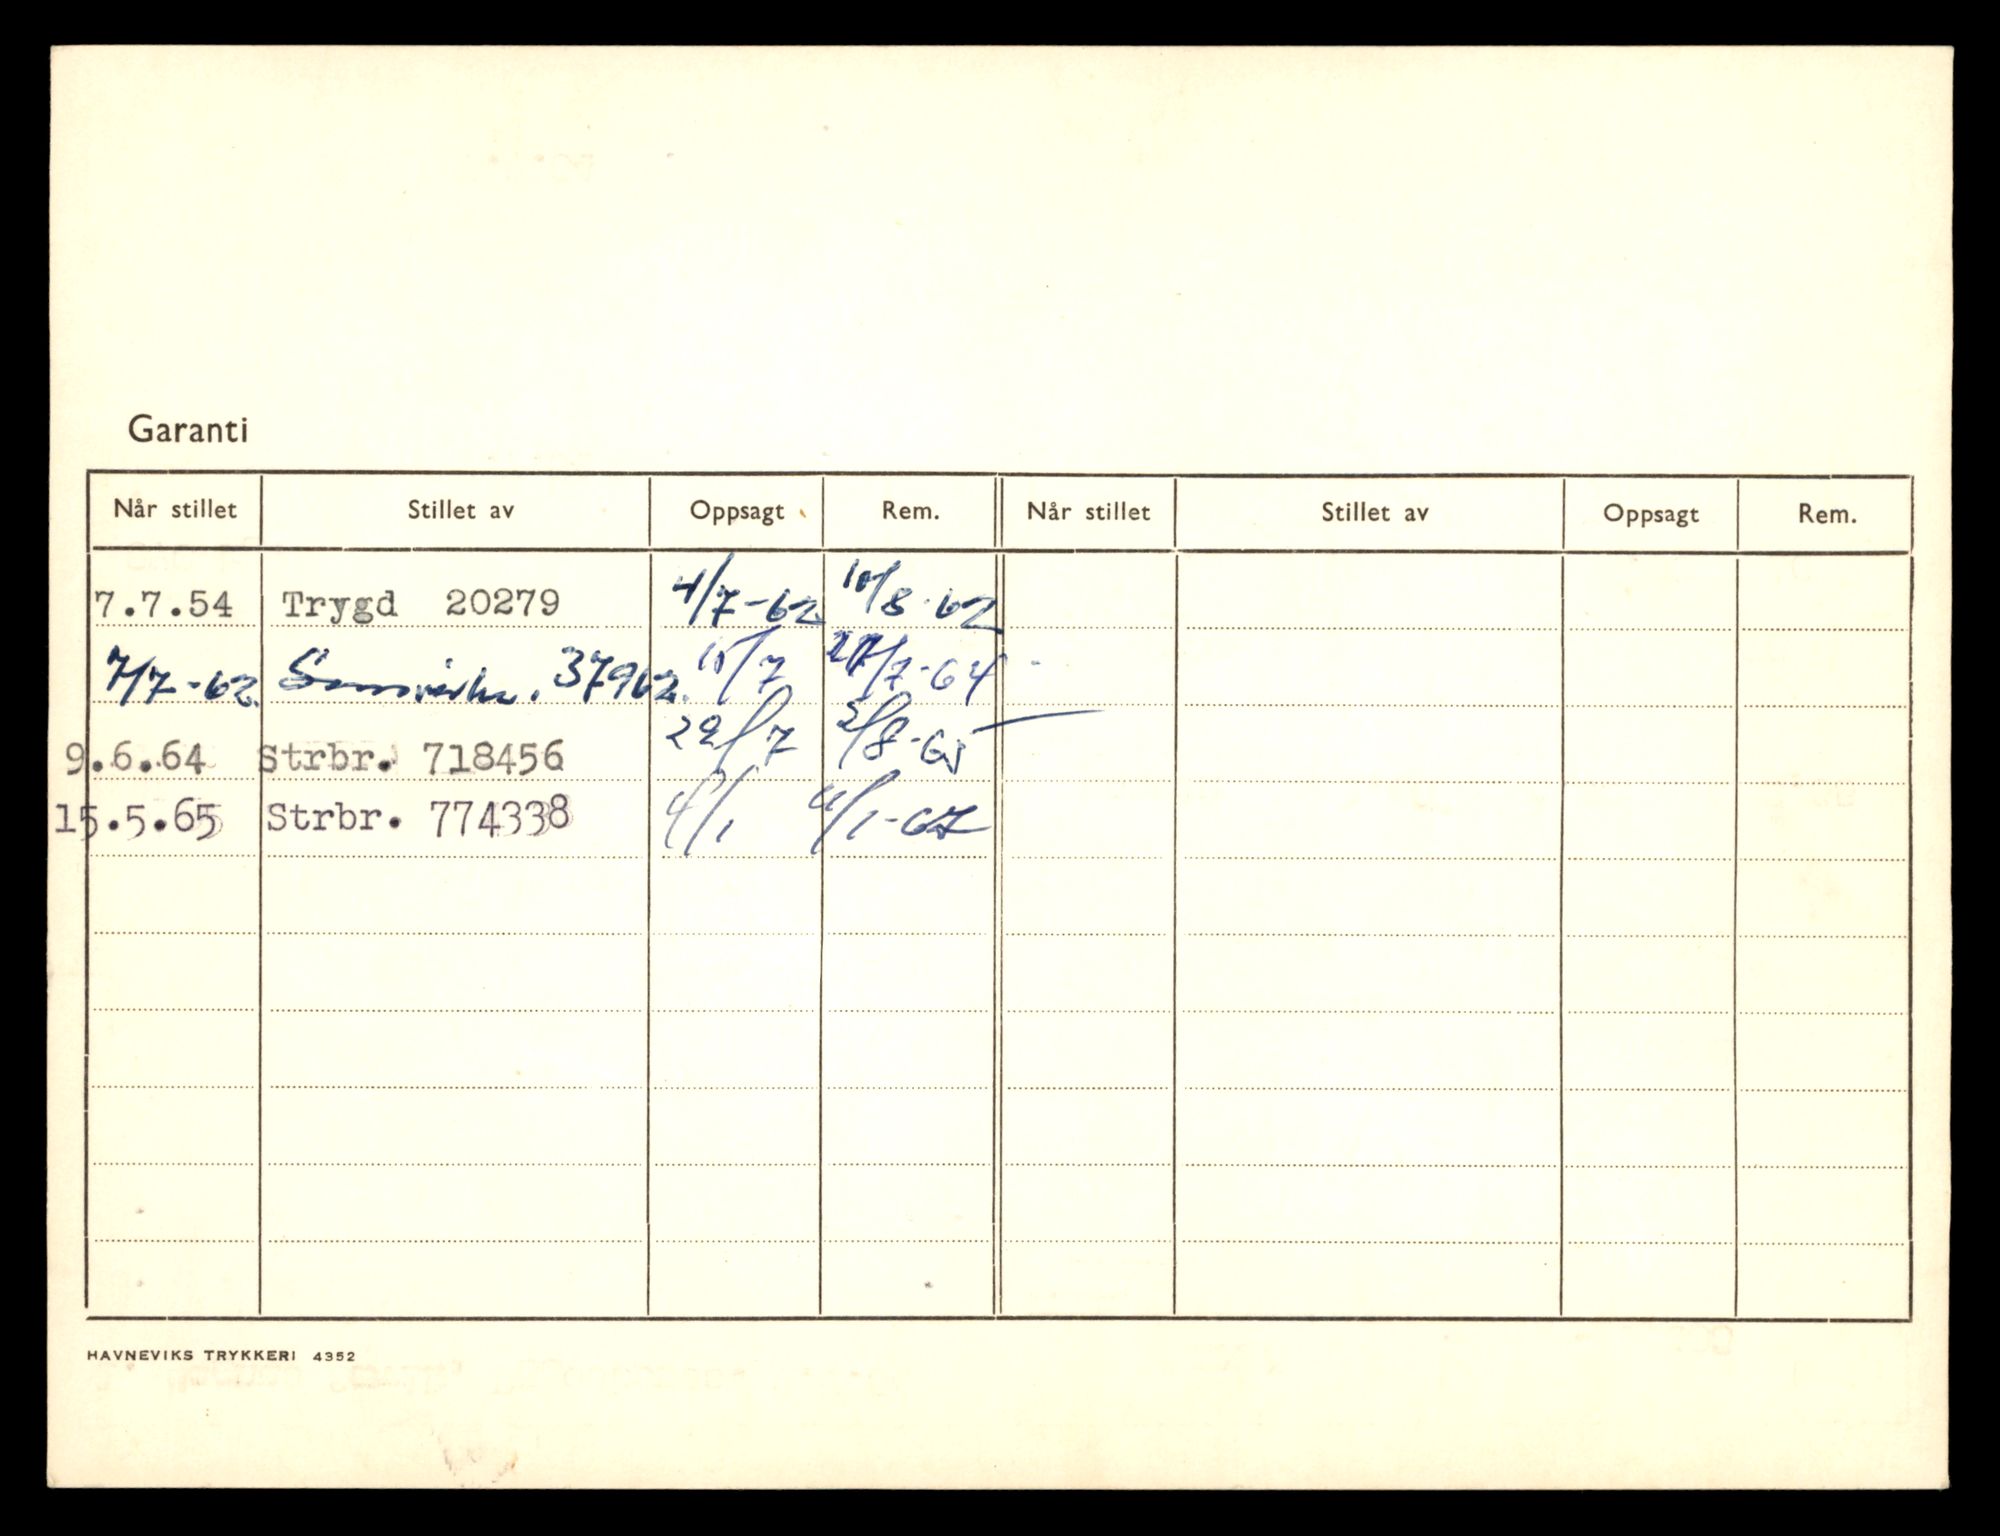 Garanti
Når stillet Stillet av Oppsagt Rem. Når stillet Stillet av Oppsagt Rem.
7.7.54 Trygd 20279 4/7-62 10/8-62
7/7-62. Samvirke. 37962. 15/7 27/7-64
9.6.64 Strbr. 718456 29/7 2/8-65
15.5.65 Strbr. 774338 4/1 4/1-67
HAVNEVIKS TRYKKERI 4352